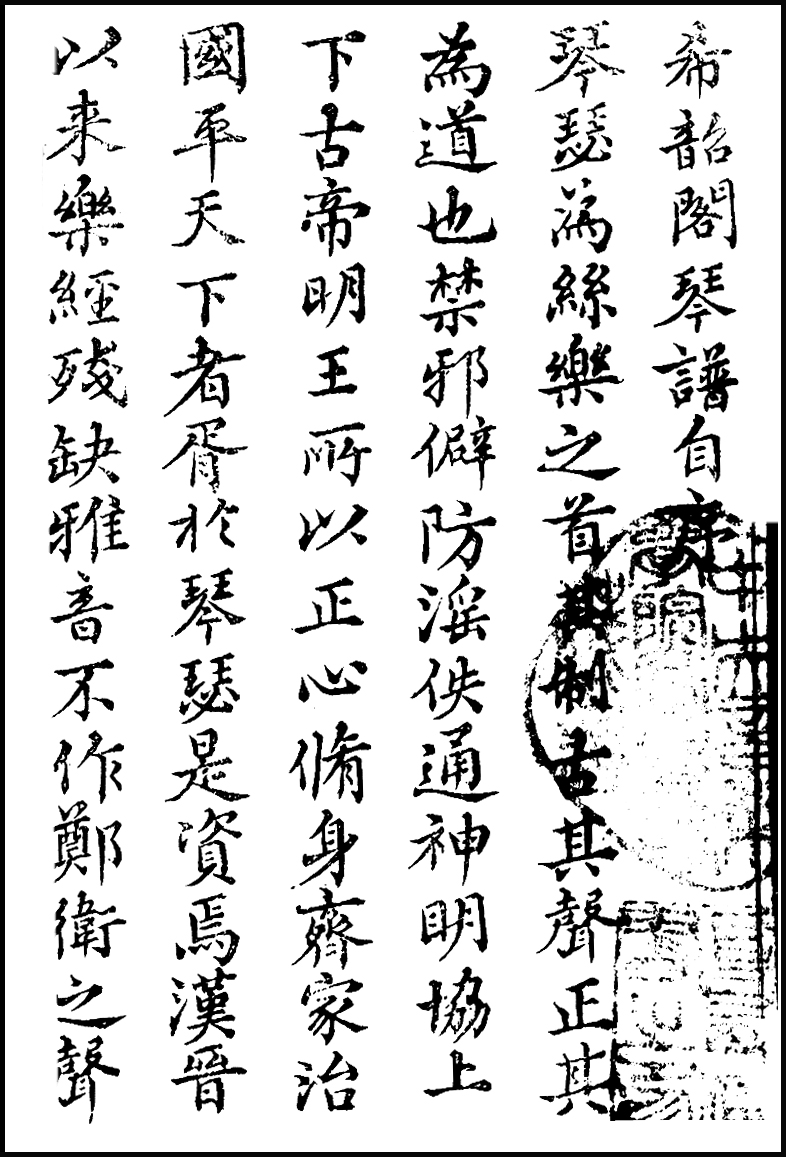 希韶閣琴譜自序
琴瑟為絲樂之首其制古其聲正其
為道也禁邪僻防淫佚通神明協上
下古帝明王所以正心脩身齊家治
國平天下者胥於琴瑟是資焉漢晉
以来樂經殘缺雅音不作鄭衛之聲